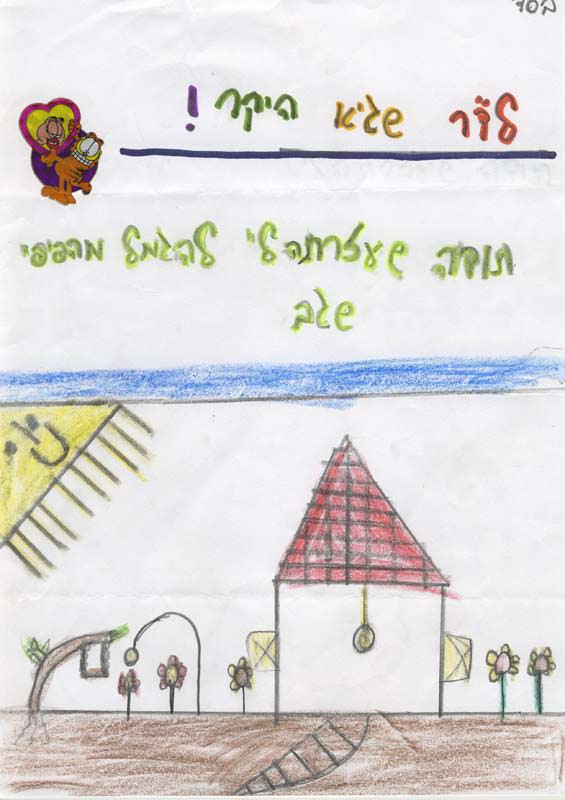 בסד
לד"ר שגיא היקר!
תודה שעזרתה לי להגמל מהפיפי
שגב